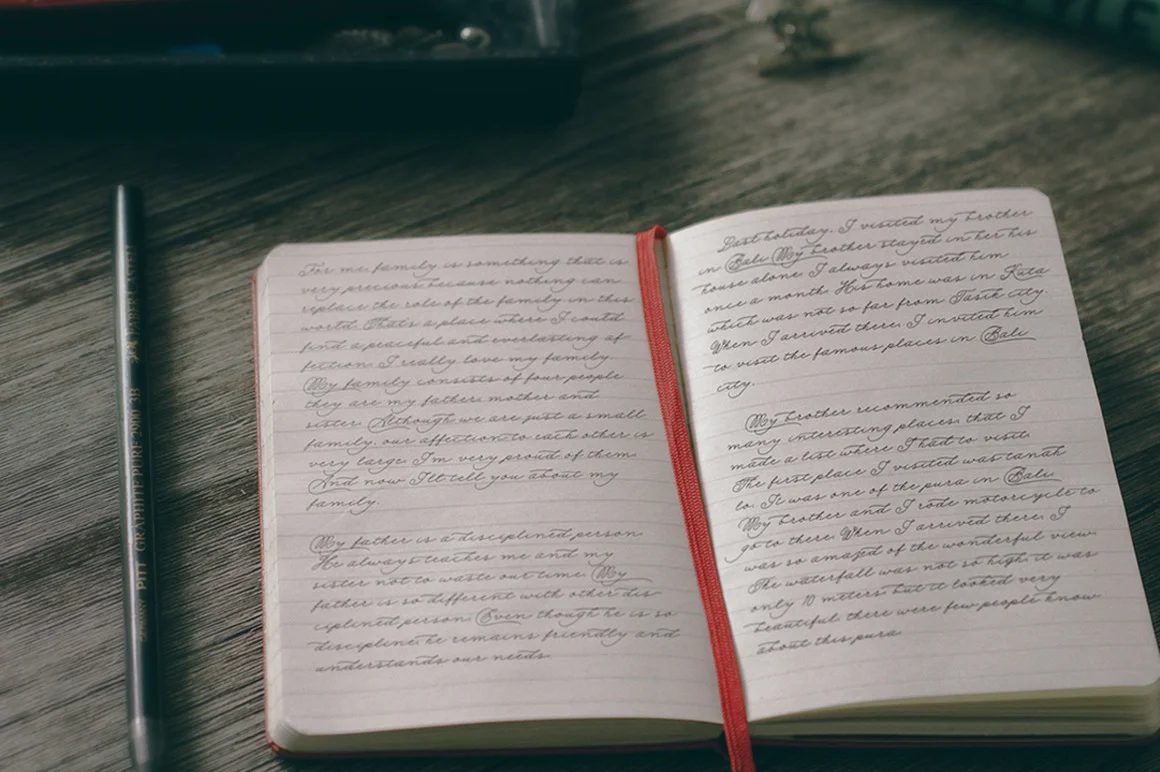 For me, family is something that is
very precious because nothing can
replace the role of the family in this
world. That's a place where I could
find a peaceful and everlasting af
fection. I really love my family.
My family consists of four people
they are my father, mother and
sister. Although we are just a small
family, our affection to each other is
very large. I'm very proud of them.
And now I'll tell you about my
family.
My father is a disciplined person.
He always teaches me and my
sister not to waste our time. My
father is so different with other dis
ciplined person. Even though he is so
discipline, he remains friendly and
understands our needs.
Last holiday, I visited my brother
in Bali My brother stayed in her his
house alone I always visited him
once a month. His home was in Kuta
which was not so far from Tasik city.
When I arrived there, I invited him
to visit the famous places in Bali
city.
My brother recommended so
many interesting places, that I
made a list where I had to visit.
The first place I visited was tanah
lo. It was one of the pura in Bali.
My brother and I rode motorcycle to
go to there. When I arrived there, I
was so amazed of the wonderful view.
The waterfall was not so high, it was
only 10 meters but it looked very
beautiful. there were few people know
about this pura.
PITT GRAPHITE PURE 2900 3B